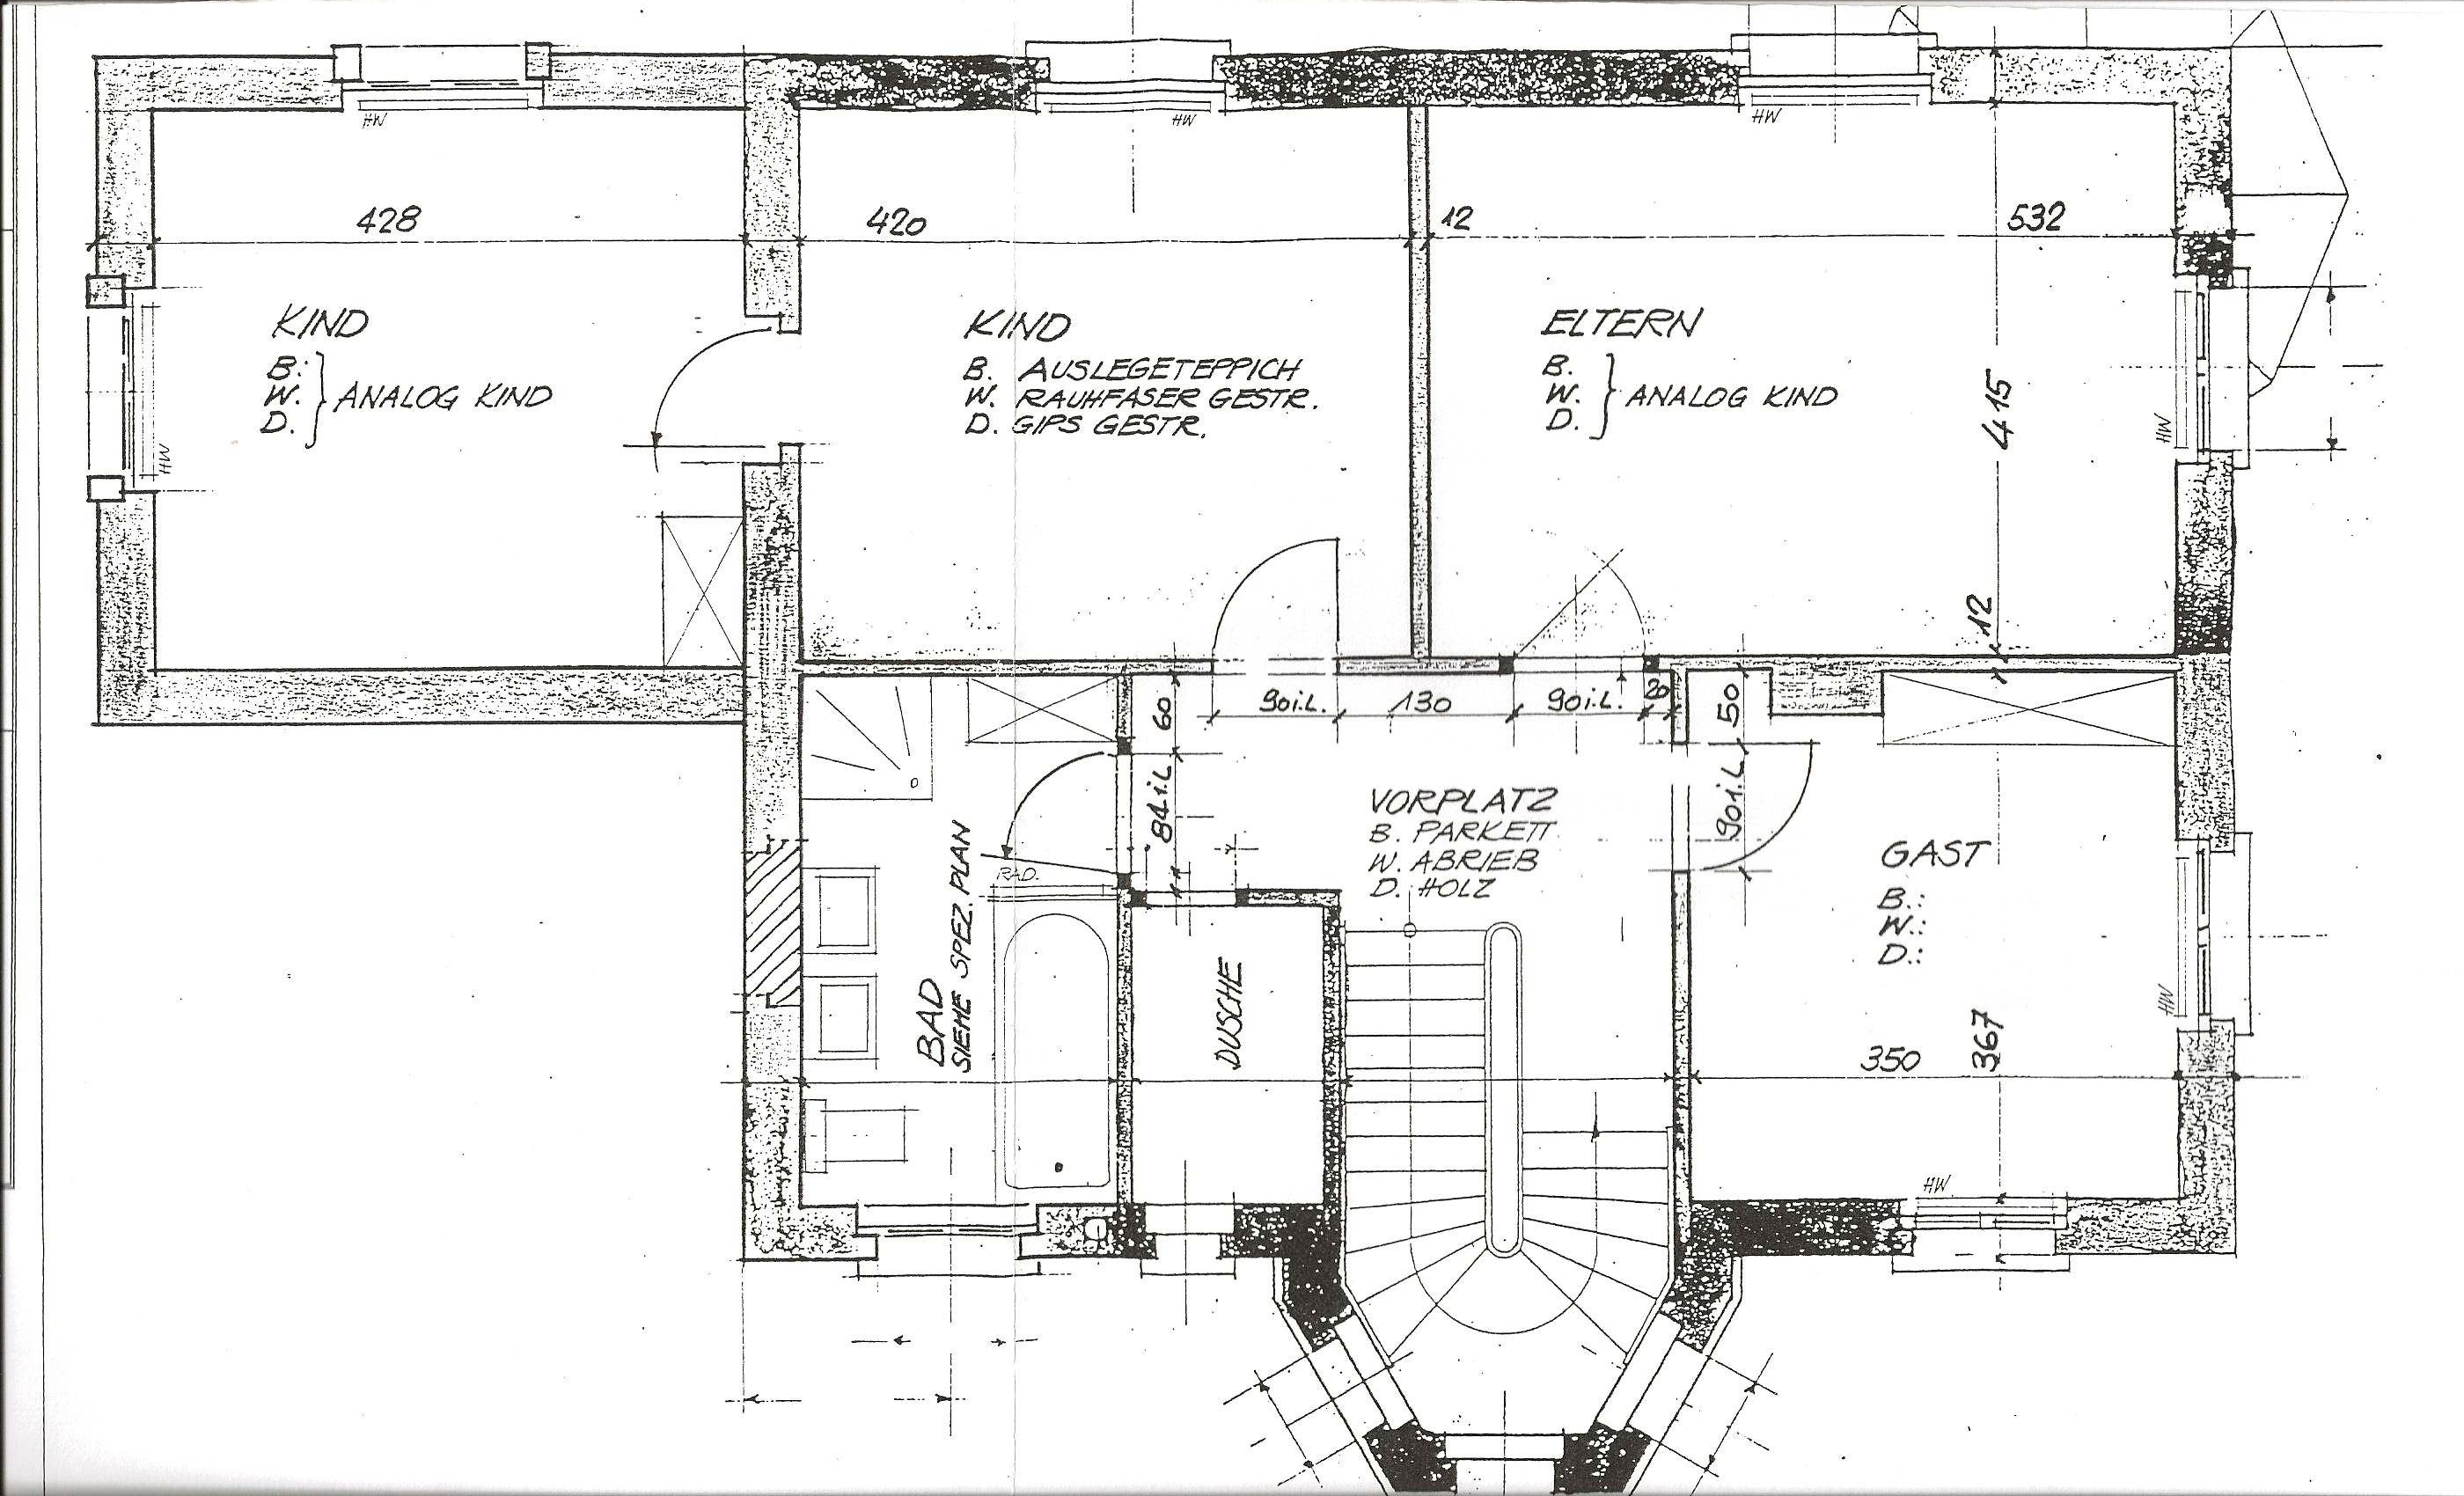 HW
HW
HW
428
420
12
532
KIND
B:
W.
D.
ANALOG KIND
HW
KIND
B. AUSLEGETEPPICH
W. RAUHFASER GESTR.
D. GIPS GESTR.
ELTERN
B.
W.
D.
ANALOG KIND
415
HW
12
60
90i.L.
130
90i.L.
20
50
84i.L
90i.L
VORPLATZ
B. PARKETT
W. ABRIEB
D. HOLZ
RAD.
BAD
SIEHE SPEZ. PLAN
DUSCHE
GAST
B.:
W.:
D.:
HW
350
367
HW